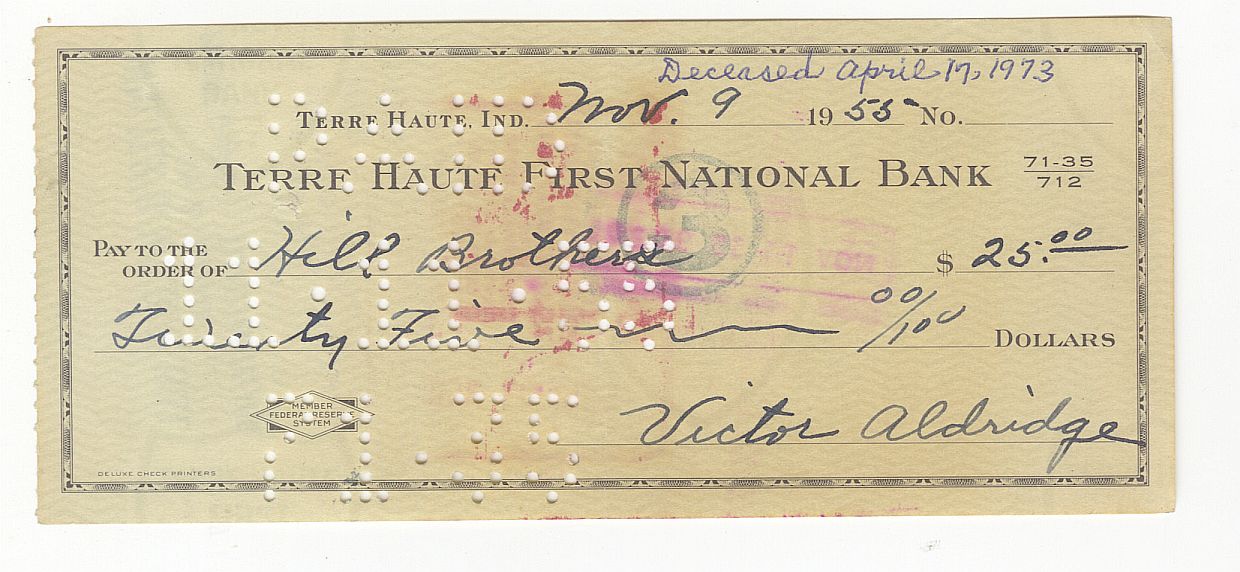 Deceased April 17, 1973
TERRE HAUTE, IND. Nov. 9 1955 No.
TERRE HAUTE FIRST NATIONAL BANK 71-35/712
PAY TO THE ORDER OF Hill Brothers $ 25.00
Twenty Five 00/100 DOLLARS
MEMBER
FEDERAL RESERVE
SYSTEM
Victor Aldridge
DELUXE CHECK PRINTERS